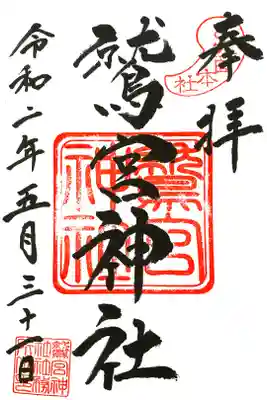 奉拝
本社
鷲宮神社
鷲宮神社
令和二年五月三十一日